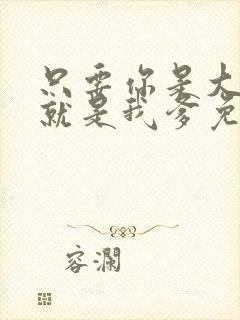 只要你是大
就是我爹免
容瀾